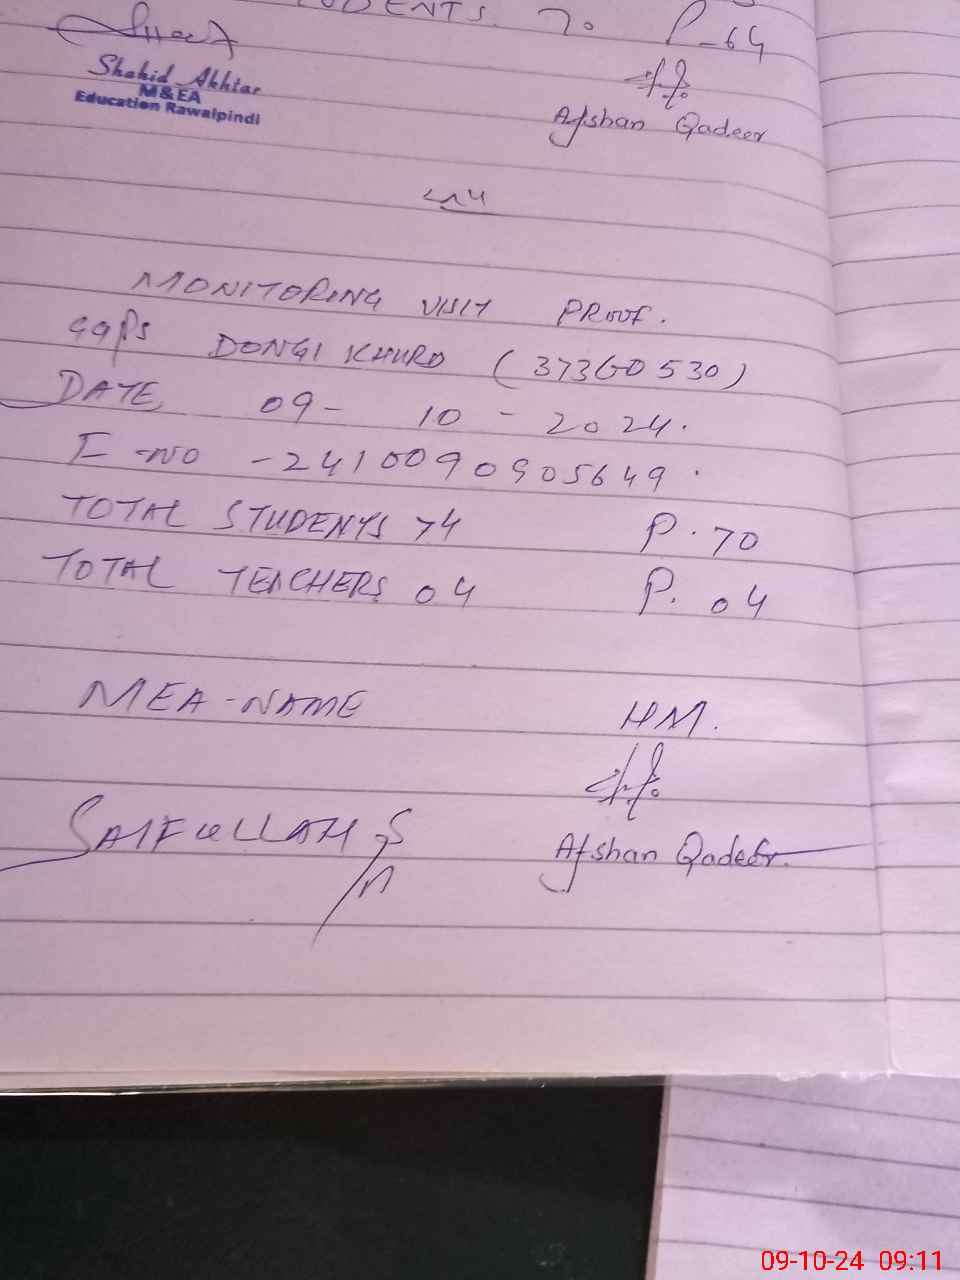 STUDENTS. 70 P-64
Shahid Akhtar
M&EA
Education Rawalpindi
Afshan Qadeer
MONITORING VISIT PROOF.
GGPS DONGI KHURD (37360530)
DATE 09-10-2024.
E-NO -2410090905649.
TOTAL STUDENTS 74 P.70
TOTAL TEACHERS 04 P.04
MEA-NAME HM.
SAIFULLAH
Afshan Qadeer.
09-10-24 09:11